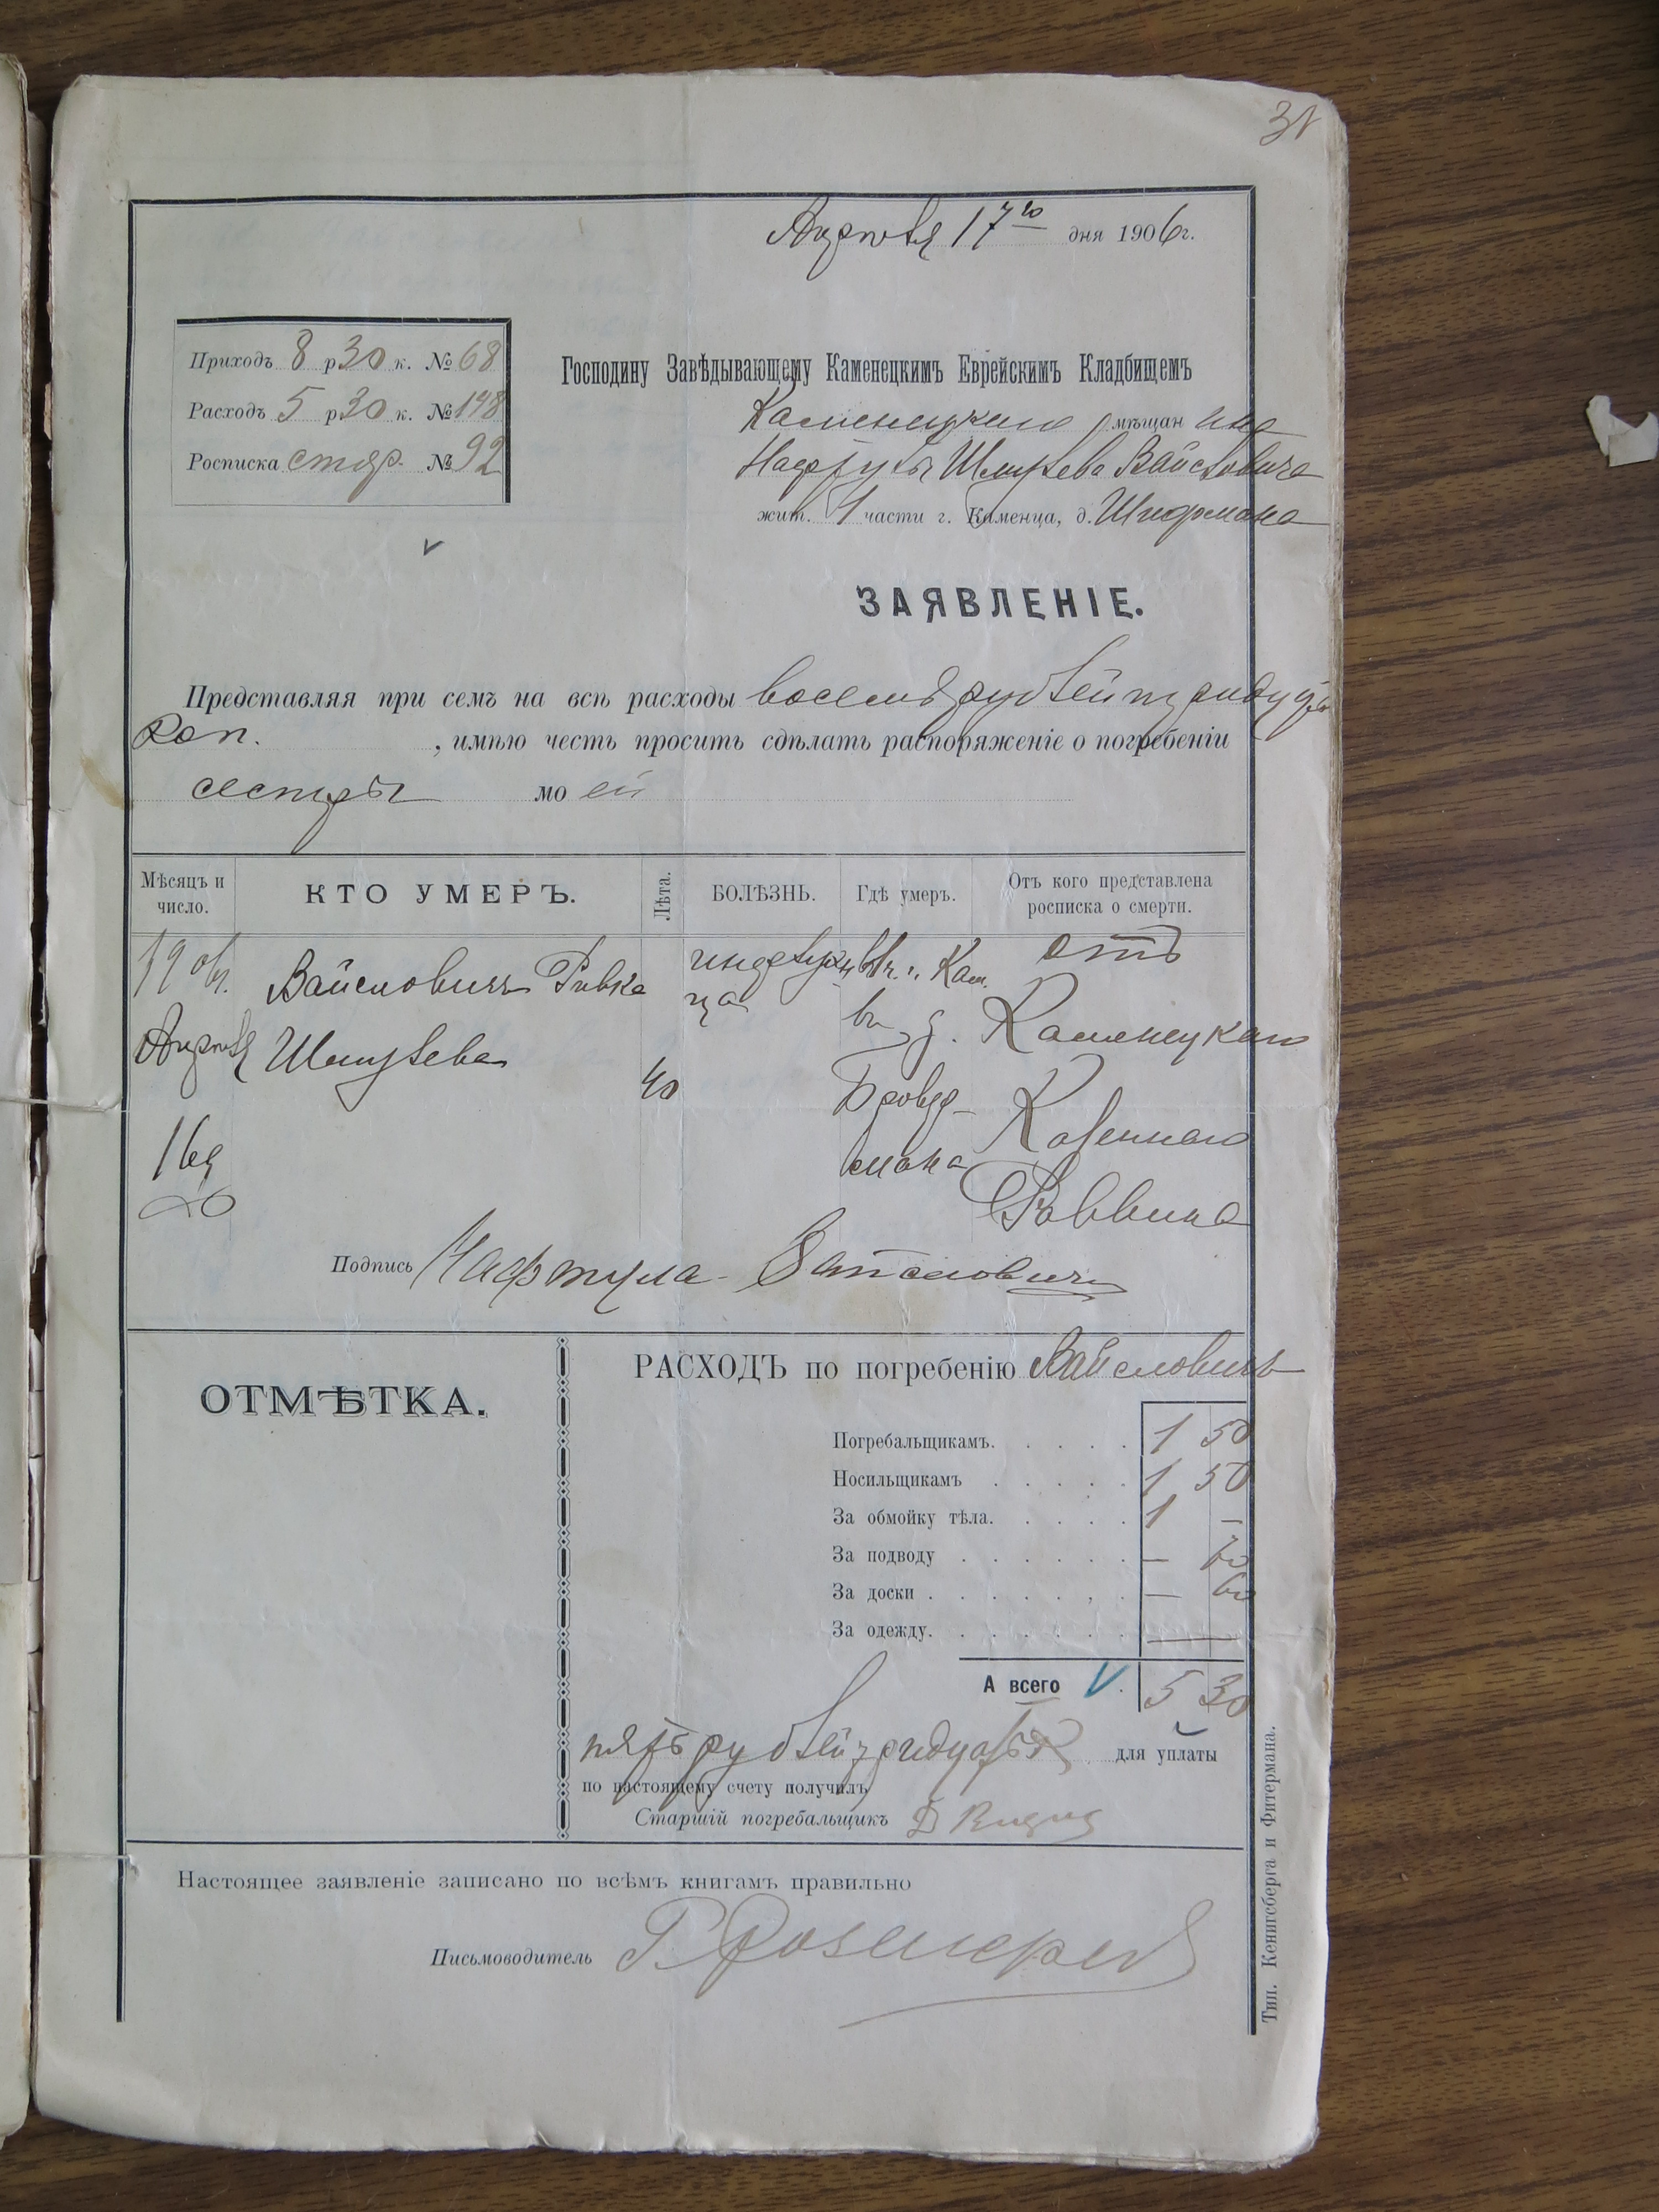 31
Апрѣля 17го дня 1906г.
Приходъ 8 р 30 к. № 68
Расходъ 5 р 30 к. № 148
Росписка стар. № 92
Господину Завѣдывающему Каменецкимъ Еврейскимъ Кладбищемъ
Каменецкаго мѣщанина
Нафтулы Вайсловича
жит. 1 части г. Каменца, д.
ЗАЯВЛЕНІЕ.
Представляя при семъ на всѣ расходы восемь рублей тридцать
коп. , имѣю честь просить сдѣлать распоряженіе о погребеніи
сестры моей
Мѣсяцъ и число.
КТО УМЕРЪ.
Лѣта.
БОЛѢЗНЬ.
Гдѣ умеръ.
Отъ кого представлена росписка о смерти.
1906г.
Апрѣля
16д
Вайсловичъ Ривка
40
въ г. Кам.
въ д.
отъ
Каменецкаго
Казеннаго
Раввина
Подпись Нафтула Вайсловичъ
ОТМѢТКА.
РАСХОДЪ по погребенію Вайсловичъ
Погребальщикамъ. 1 50
Носильщикамъ 1 50
За обмойку тѣла. 1 —
За подводу — 70
За доски — 60
За одежду. —
А всего 5 30
пять рублей тридцать к для уплаты
по настоящему счету получилъ
Старшій погребальщикъ
Настоящее заявленіе записано по всѣмъ книгамъ правильно
Письмоводитель
Тип. Кенигсберга и Фитермана.